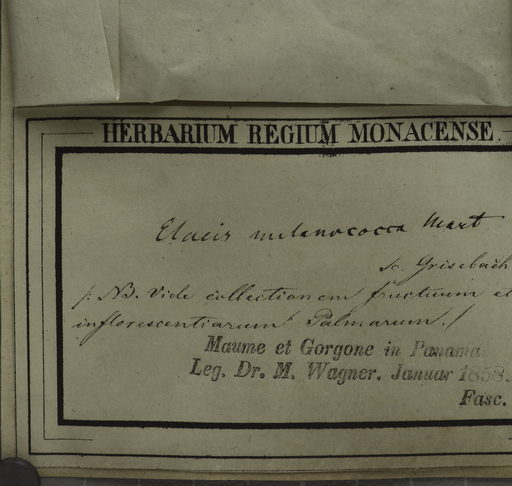 HERBARIUM REGIUM MONACENSE.
Elaeis melanococca Mart
sc. Grisebach
/: NB. Vide collectionem fructuum et
inflorescentiarum Palmarum./
Maume et Gorgone in Panama
Leg. Dr. M. Wagner. Januar 1858.
Fasc.